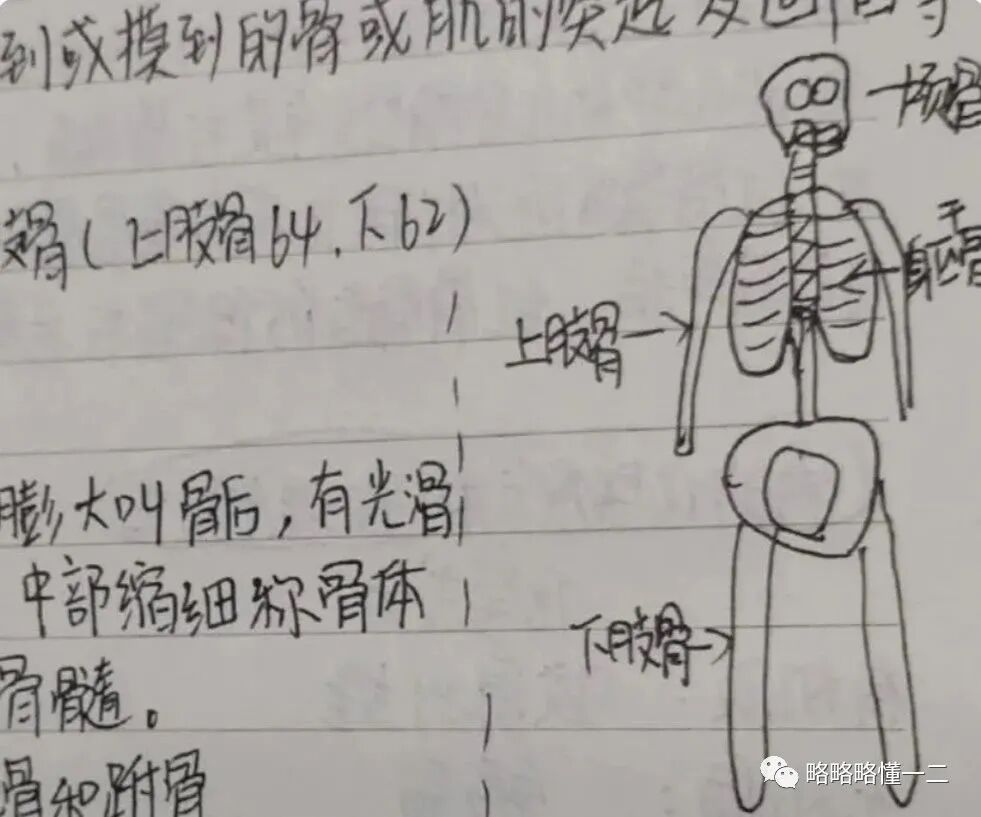 到或摸到的骨或肌的突起及凹陷等
支骨(上肢骨64、下62)
膨大叫骨后,有光滑
中部缩细称骨体
骨髓。
骨和跗骨
颅骨
躯干骨
上肢骨
下肢骨
略略略懂一二